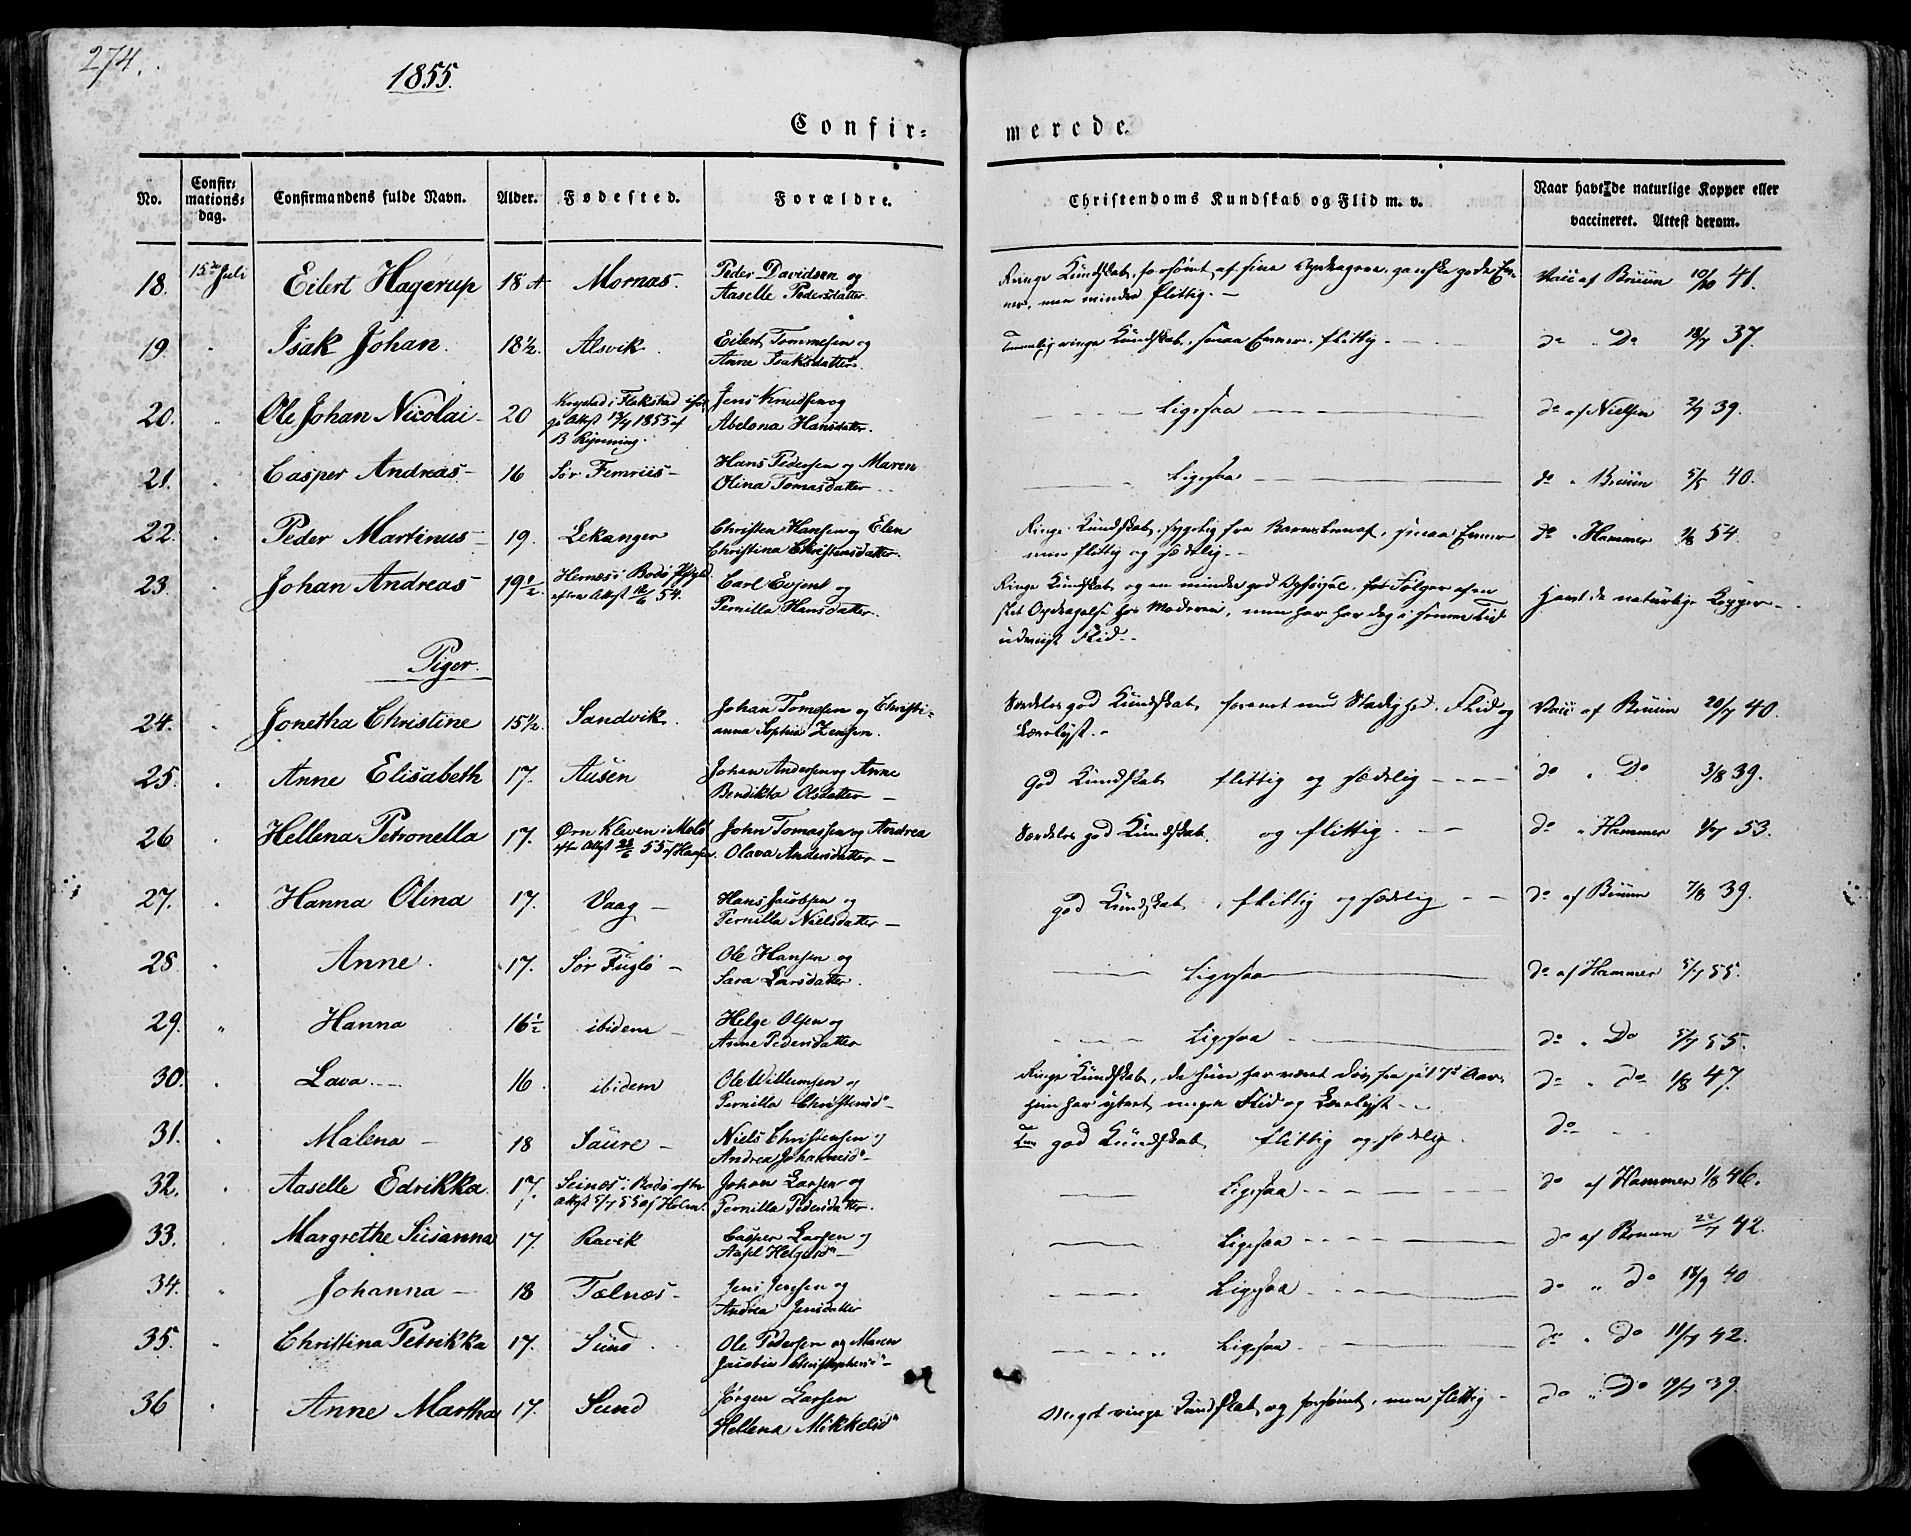 274.
1855.
Confir= merede.
No. Confir= mations= dag. Confirmandens fulde Navn. Alder. Fødested. Forældre. Christendoms Kundskab og Flid m. v. Naar havt de naturlige Kopper eller vaccineret. Attest derom.
18. 15de Juli Eilert Hagerup 18 Mornæs. Peder Davidsen og
Aaselle Pedersdatter.
Ringe Kundskab, forsømt af sine ganske gode Ev-
ner, men mindre flittig. —
Vacc af Bruun 10/10 41.
19. " Isak Johan. 18½. Alsvik. Eilert Tommesen og
Anne Isaksdatter.
Temmelig ringe Kundskab, smaa Evner, flittig. — do " Do 18/7 37.
20. " Ole Johan Nicolai — 20 i Flakstad
Attest 13/7 1855 af
B Rynning.
Jens Knudsen og
Abelona Hansdatter.
Ligesaa do af Nielsen 2/7 39.
21. " Casper Andreas — 16 Sør Femriis — Hans Pedersen og Maren
Olina Tomasdatter.
Ligesaa do " Bruun 5/5 40.
22. " Peder Martinus — 19. Lekanger Christen Hansen og Elen
Christina Christensdatter.
Ringe Kundskab, sygelig fra Barnsbeenaf, smaa Evner
men flittig og sædelig. —
do " Hammer 1/8 54.
23. Johan Andreas — 19½. Hernæs i Bodø
Attest 12/6 54.
Carl Evjent og
Pernilla Hansdatter.
Ringe Kundskab og en mindre god Opførsel, Følger af en
slet Opdragelse hos Moderen, men har dog i senere Tid
udviist Flid. —
Havt de naturlige Kopper —
Piger.
24. " Jonetha Christine 15½. Sandvik. Johan Tomesen og Christi-
anna Sophia Jensen.
Særdeles god Kundskab forenet med Stadighed, Flid og
Lærelyst. —
Vacc af Bruun 20/7 40.
25. " Anne Elisabeth 17. Ausen Johan Andersen og Anne
Bendikta Olsdatter —
God Kundskab flittig og sædelig — do " Do 3/8 39.
26 Hellena Petronella 17. Ørn Kleven i Melø
efter Attest 23/6 55 af Hansen.
John Tomassen og Andrea
Olava Andersdatter —
Særdeles god Kundskab og flittig. — do " Hammer 1/7 53.
27. " Hanna Olina 17. Vaag — Hans Jacobsen og
Pernilla Nielsdatter —
god Kundskab, flittig og sædelig — do af Bruun 7/8 39.
28 " Anne. 17. Sør Fuglø — Ole Hansen og
Sara Larsdatter.
Ligesaa do af Hammer 5/7 55.
29. " Hanna 16½ ibidem — Helge Olsen og
Anne Pedersdatter
Ligesaa do " Do 5/7 55.
30. " Lava. — 16. ibidem Ole Willumsen og
Pernilla Christensd —
Ringe Kundskab, da hun har været døv fra sit 7de Aar,
hun har ydret megen Flid og Lærelyst —
do " do 1/8 47.
31. " Malena — 18 Saure — Niels Christensen og
Andrea Johannesd —
Tem god Kundskab flittig og sædelig. do
32. " Aaselle Edrikka. 17. Seines i Bodø efter
Attest 5/7 55 af Holm.
Johan Larsen og
Pernilla Pedersdatter.
Ligesaa do af Hammer 1/8 46.
33. " Margrethe Susanna 17. Ravik Casper Larsen og
Aasel Helgesd —
Ligesaa do af Bruun 22/7 42.
34. " Johanna — 18 Fælnæs — Jens Jensen og
Andrea Jensdatter
Ligesaa do " do 18/9 40
35. " Christina Petrikka 17. Sund Ole Pedersen og Maren
Jacobia Christophersd —
Ligesaa do " Do 11/7 42.
36 " Anne Martha 17. Sund Jørgen Larsen
Hellena Mikkelsd
Meget ringe Kundskab og forsømt, men flittig — do " Do 19/7 39.